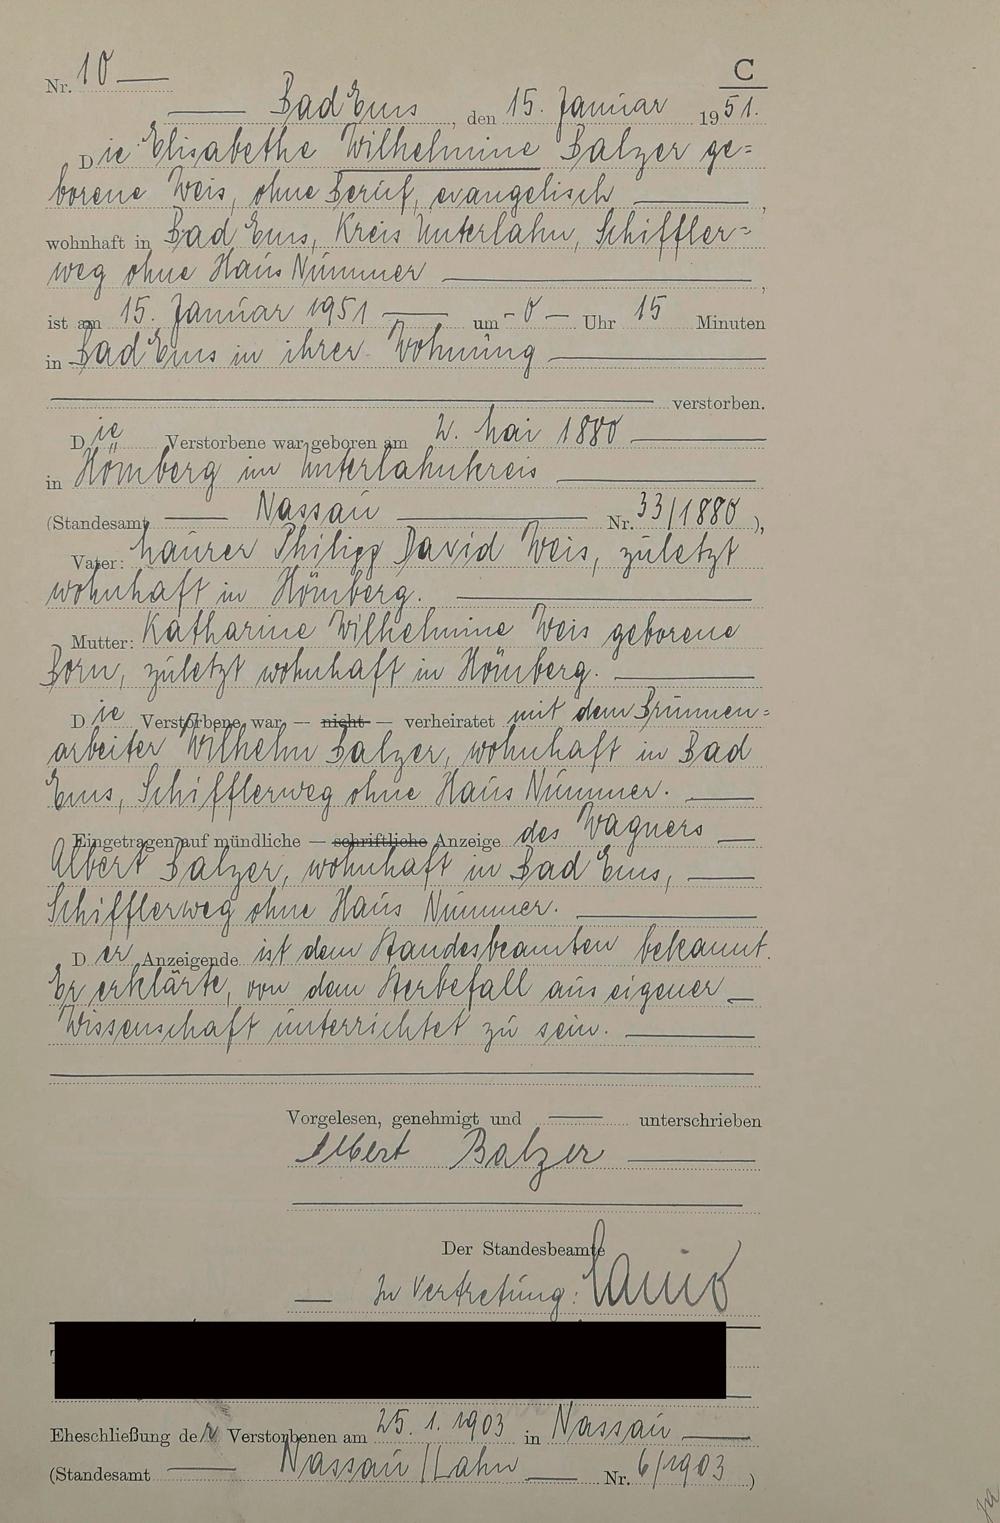 Nr. 10
C
Bad Ems, den 15. Januar 1951.
Die Elisabethe Wilhelmine Balzer ge=
borene Weis, ohne Beruf, evangelisch,
wohnhaft in Bad Ems, Kreis Unterlahn, Schiffler=
weg ohne Haus Nummer,
ist am 15. Januar 1951 um 0 Uhr 15 Minuten
in Bad Ems in ihrer Wohnung
verstorben.
Die Verstorbene war geboren am 2. Mai 1880
in Hömberg im Unterlahnkreis
(Standesamt Nassau Nr. 33/1880),
Vater: Maurer Philipp David Weis, zuletzt
wohnhaft in Hömberg.
Mutter: Katharine Wilhelmine Weis geborene
Born, zuletzt wohnhaft in Hömberg.
Die Verstorbene war — nicht — verheiratet mit dem Brunnen=
arbeiter Wilhelm Balzer, wohnhaft in Bad
Ems, Schifflerweg ohne Haus Nummer.
Eingetragen auf mündliche — schriftliche Anzeige des Wagners
Albert Balzer, wohnhaft in Bad Ems,
Schifflerweg ohne Haus Nummer.
Der Anzeigende ist dem Standesbeamten bekannt.
Er erklärte, von dem Sterbefall aus eigener
Wissenschaft unterrichtet zu sein.
Vorgelesen, genehmigt und unterschrieben
Albert Balzer
Der Standesbeamte
In Vertretung:
Eheschließung der Verstorbenen am 25. 1. 1903 in Nassau
(Standesamt Nassau/Lahn Nr. 6/1903)